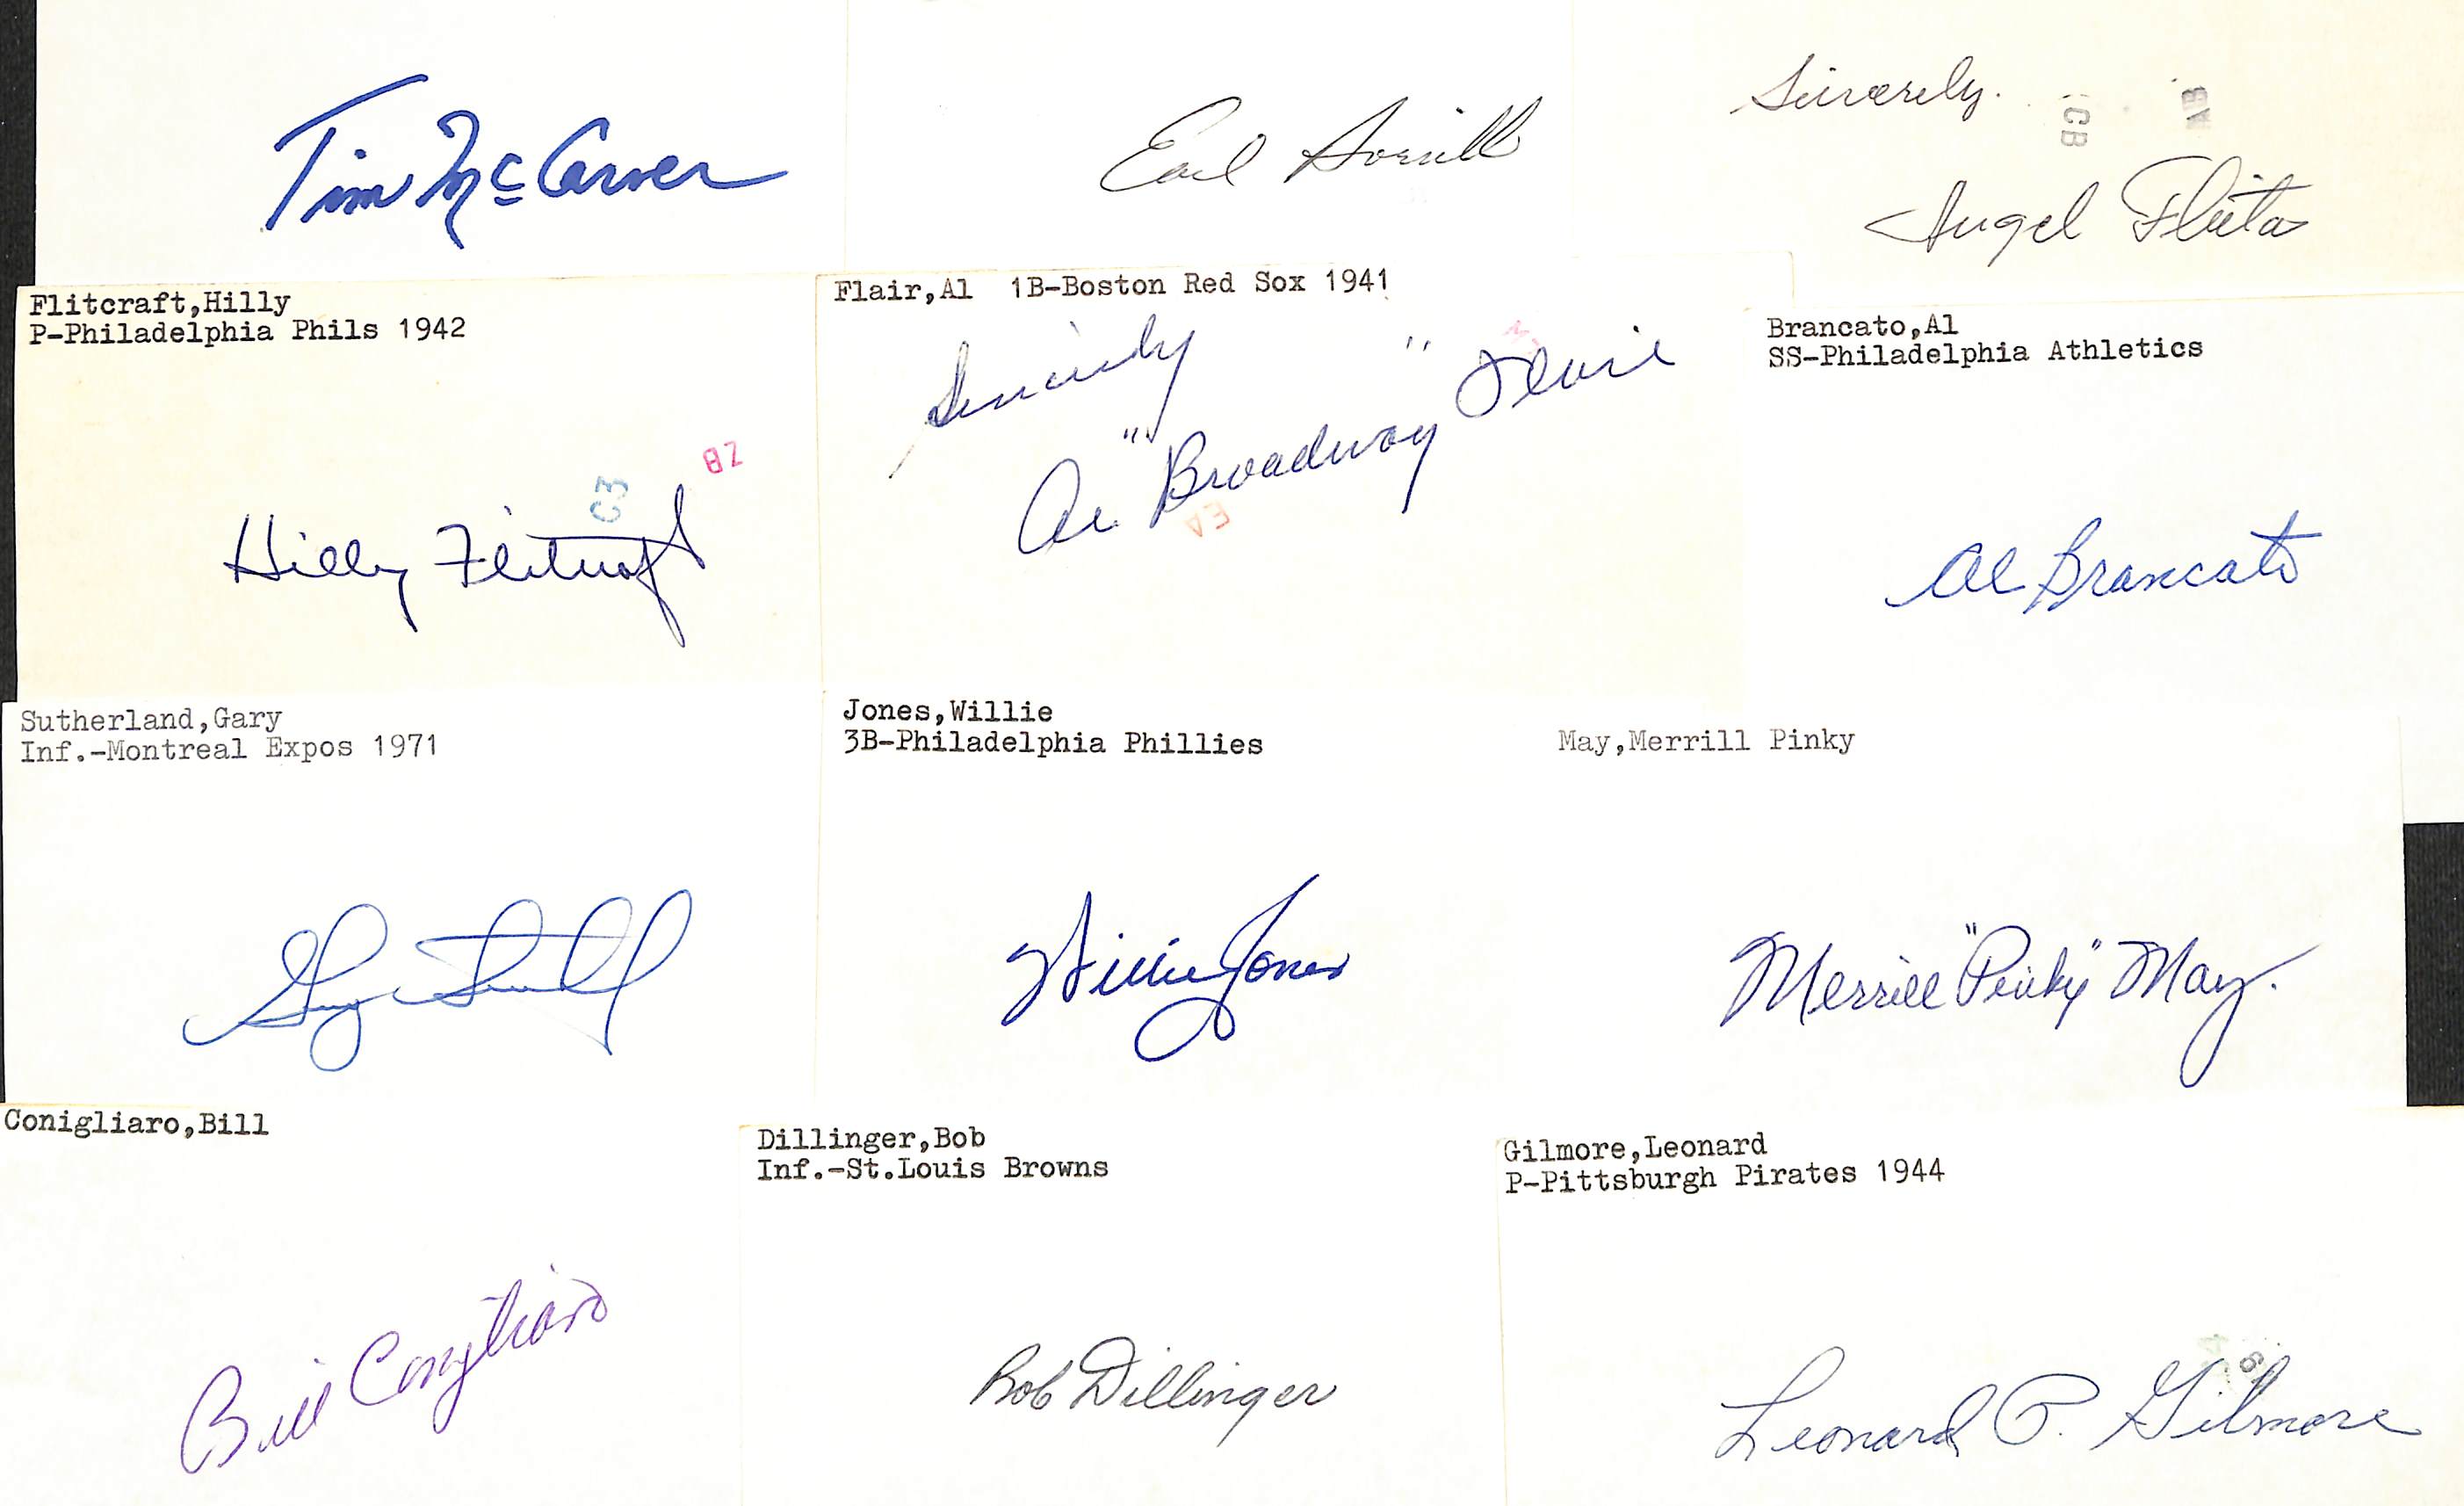 Tim McCarver
Earl Averill
Sincerely.
CB
AB
Angel Fleitas
Flitcraft,Hilly
P-Philadelphia Phils 1942
BZ
C3
Hilly Flitcraft
Flair,Al 1B-Boston Red Sox 1941
Sincerely
Al "Broadway" Flair
EA
Brancato,Al
SS-Philadelphia Athletics
Al Brancato
Sutherland,Gary
Inf.-Montreal Expos 1971
Gary Sutherland
Jones,Willie
3B-Philadelphia Phillies
Willie Jones
May,Merrill Pinky
Merrill "Pinky" May.
Conigliaro,Bill
Bill Conigliaro
Dillinger,Bob
Inf.-St.Louis Browns
Bob Dillinger
Gilmore,Leonard
P-Pittsburgh Pirates 1944
Leonard P. Gilmore